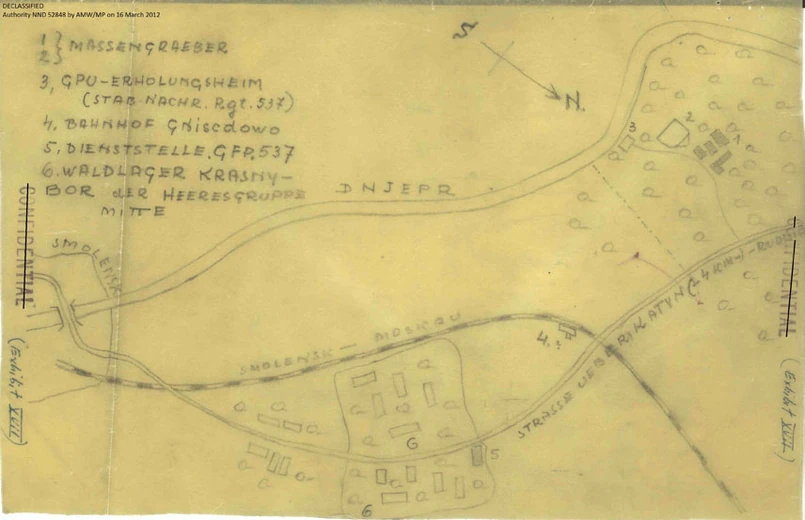 DECLASSIFIED
Authority NND 52848 by AMW/MP on 16 March 2012
1 } MASSENGRAEBER
2
3, GPU-ERHOLUNGSHEIM
(STAB NACHR. Rgt. 537)
4, BAHNHOF GNISCDOWO
5, DIENSTSTELLE GFP. 537
6. WALDLAGER KRASNY-
BOR DER HEERESGRUPPE
MITTE
S
N.
DNJEPR
3
2
1
CONFIDENTIAL
SMOLENSK
(Exhibit XVII)
SMOLENSK — MOSKAU
4,
STRASSE UEBER KATYN (-4 KM-)
CONFIDENTIAL
(Exhibit XVII)
6
5
6